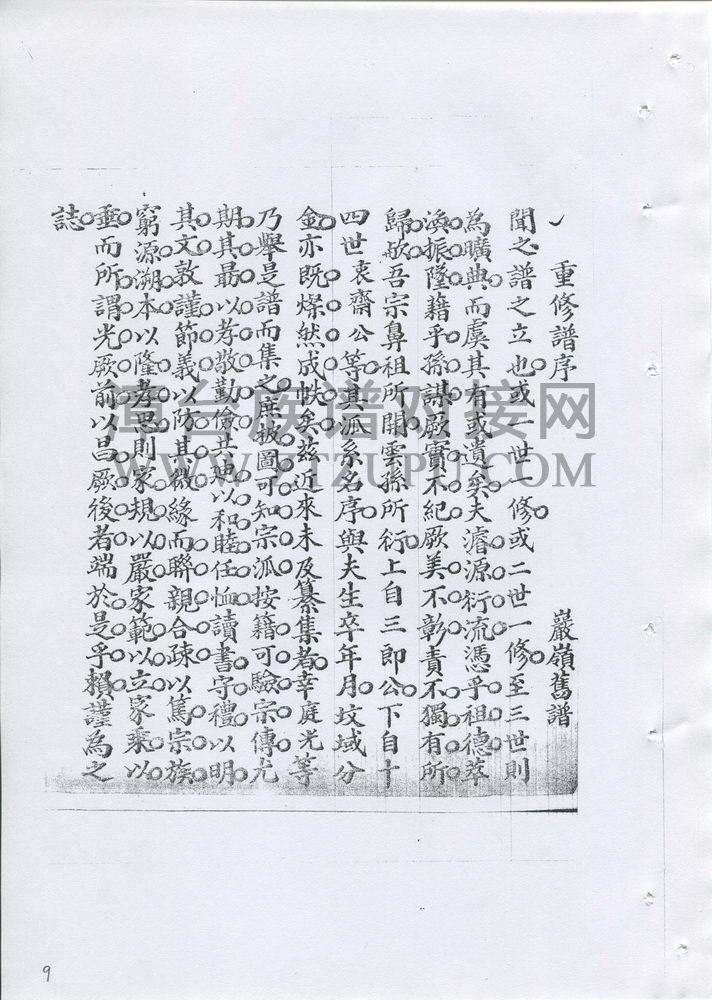 重修譜序　巖嶺舊譜
聞之譜之立也或一世一修或二世一修至三世則
為曠典而虞其有或遺矣夫濬源衍流憑乎祖德萃
渙振隆藉乎孫謀厥實不紀厥美不彰責不獨有所
歸歟吾宗鼻祖所開雲孫所衍上自三郎公下自十
四世衷齋公等其泒系名序與夫生卒年月坟域分
金亦既燦然成帙矣茲近來未及纂集者幸庭光等
乃舉是譜而集之庶披圖可知宗泒按籍可驗宗傳尤
期其最以孝敬勤儉共迪以和睦任恤讀書守禮以明
其文敦謹節義以防其微緣而聯親合疎以篤宗族
窮源溯本以隆孝思則家規以嚴家範以立家乘以
垂而所謂光厥前以昌厥後者端於是乎賴謹為之
誌
漳台族谱对接网
WWW.ZTZUPU.COM
9